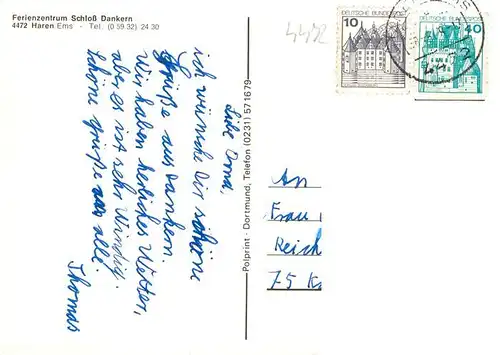 Ferienzentrum Schloß Dankern
4472 Haren/Ems - Tel. (0 59 32) 24 30
4472
DEUTSCHE BUNDESPOST
10
DEUTSCHE BUNDESPOST
40
Liebe Oma,
ich wünsche dir schöne
Grüße aus Dankern.
Wir haben herliches Wetter,
aber es ist sehr Windig.
schöne grüße an alle.
Thomas
Polyprint · Dortmund, Telefon (0231) 571679
An
Frau
Reich
75 K